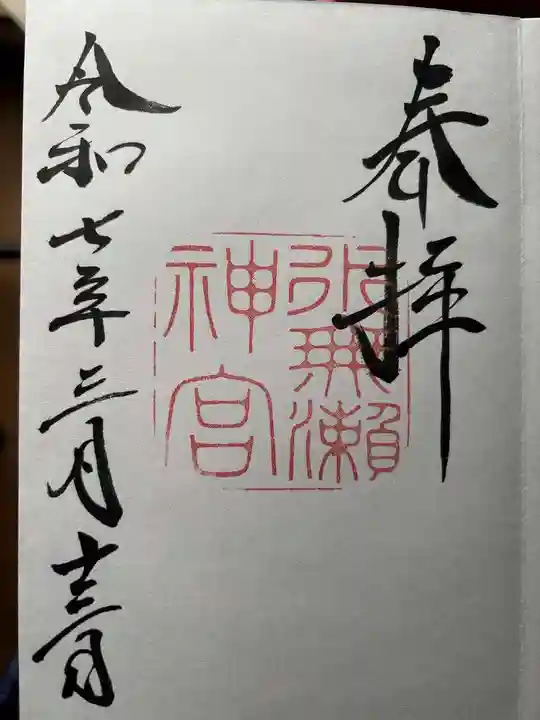 奉拝
水無瀨
神宮
令和七年三月十三日